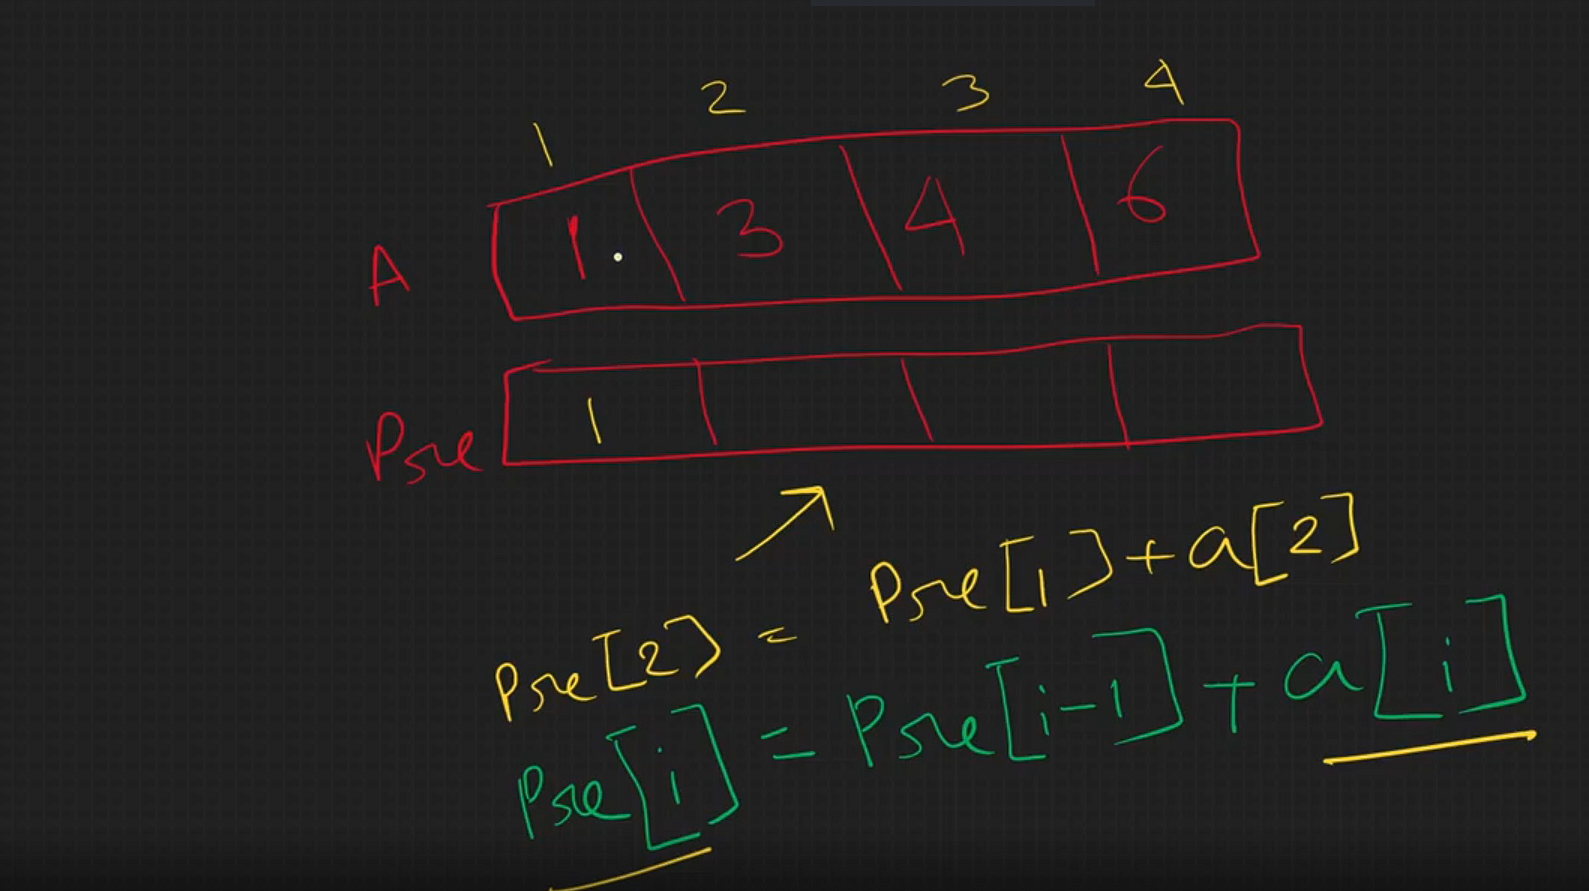 1 2 3 4
A 1 3 4 6
Pre 1
Pre[2] = Pre[1] + a[2]
Pre[i] = Pre[i-1] + a[i]